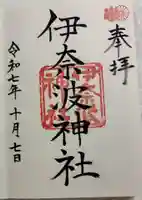 奉拝
伊奈波神社
令和七年十月七日